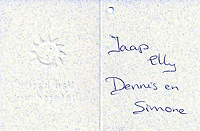 Jaap
Elly
Dennis en
Simone